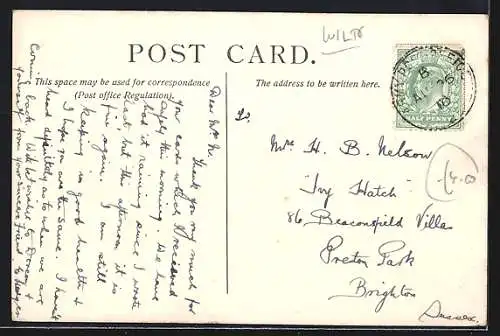 WILTS
POST CARD.
This space may be used for correspondence
(Post office Regulation).
The address to be written here.
HALF PENNY
Dear Mrs N.
Thank you very much for
your card which I received
safely this morning. We have
had it raining since I wrote
last, but this afternoon it is
fine again. I am still
keeping in good health &
I hope you are the same. I haven't
heard definitely as to when we are
coming back. With kind wishes to
yourself from your sincere friend
To
Mrs H. B. Nelson
"Ivy Hatch"
86 Beaconsfield Villas
Preston Park
Brighton
Sussex.
4.00